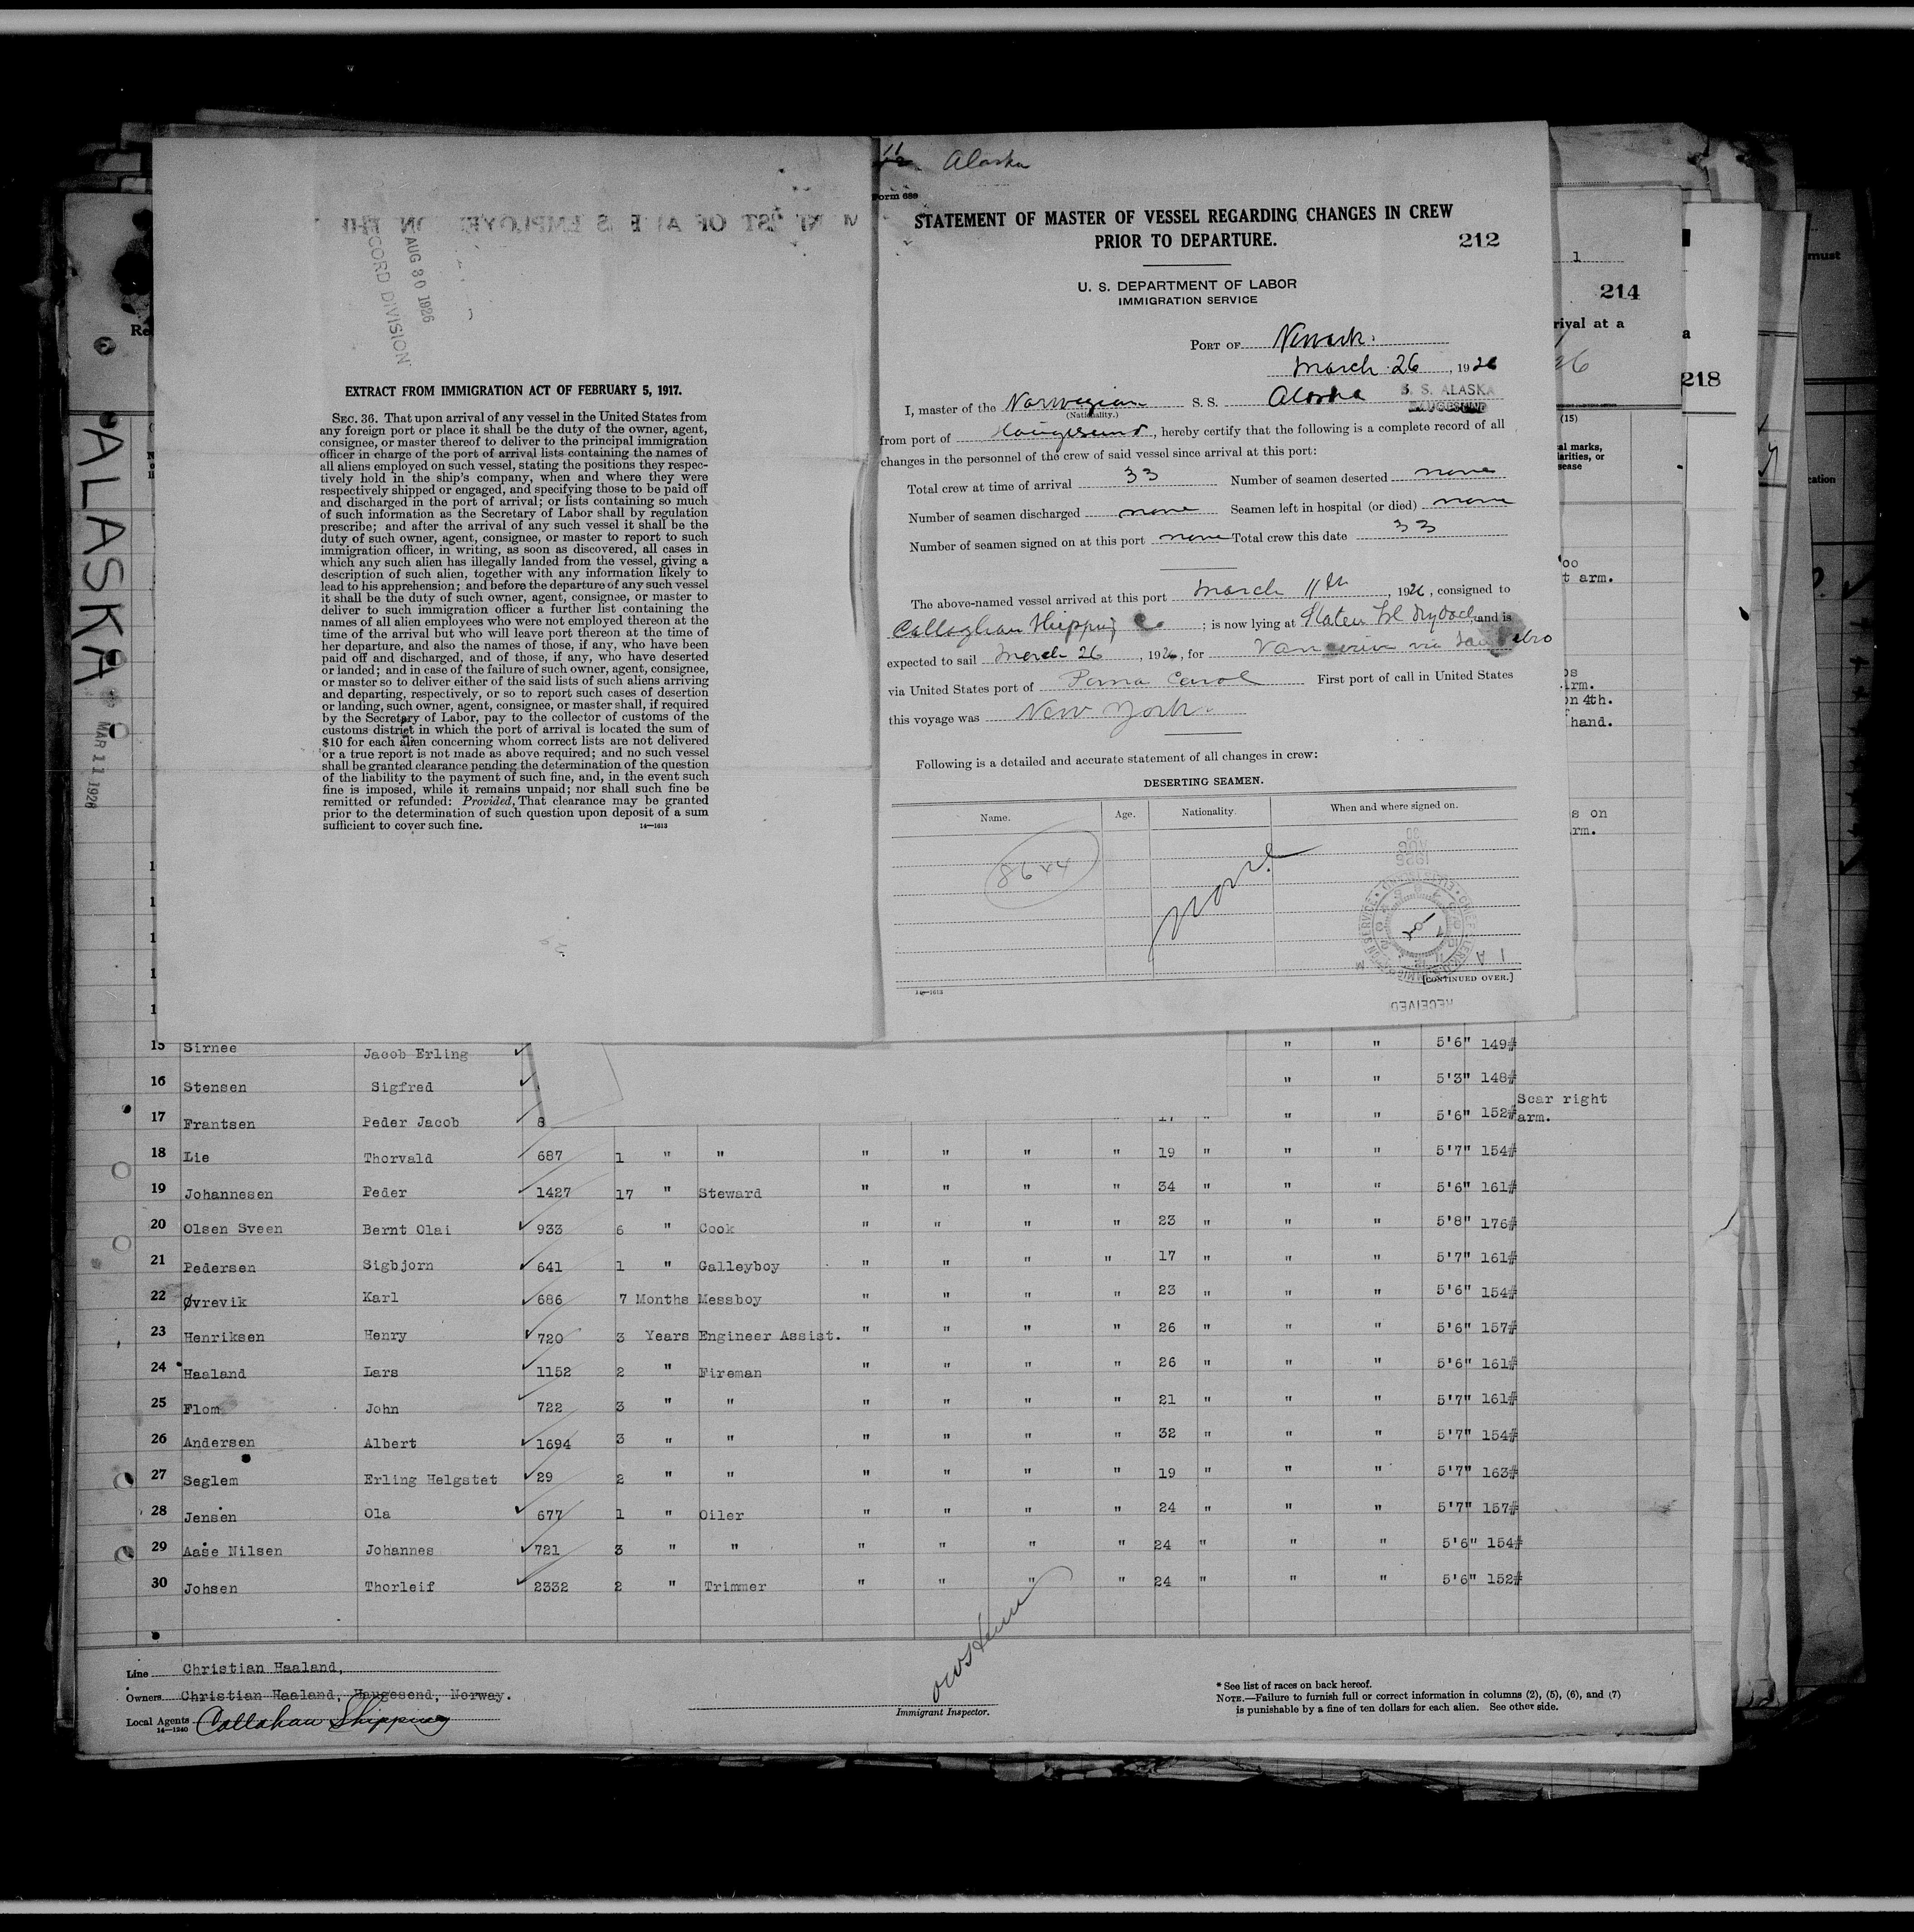 Alaska
Form 689
STATEMENT OF MASTER OF VESSEL REGARDING CHANGES IN CREW
PRIOR TO DEPARTURE.
212
U. S. DEPARTMENT OF LABOR
IMMIGRATION SERVICE
PORT OF Newark.
March 26, 1926
I, master of the Norwegian S. S. Alaska S. S. ALASKA
(Nationality.) HAUGESUND
from port of Haugesund, hereby certify that the following is a complete record of all
changes in the personnel of the crew of said vessel since arrival at this port:
Total crew at time of arrival 33 Number of seamen deserted none
Number of seamen discharged none Seamen left in hospital (or died) none
Number of seamen signed on at this port none Total crew this date 33
The above-named vessel arrived at this port March 11th, 1926, consigned to
Callaghan Shipping Co; is now lying at Staten Isl Drydock, and is
expected to sail March 26, 1926, for
via United States port of First port of call in United States
this voyage was New York.
Following is a detailed and accurate statement of all changes in crew:
DESERTING SEAMEN.
Name. Age. Nationality. When and where signed on.
8644
none
[CONTINUED OVER.]
14—1613
RECEIVED
AUG 30 1926
RECORD DIVISION
EXTRACT FROM IMMIGRATION ACT OF FEBRUARY 5, 1917.
SEC. 36. That upon arrival of any vessel in the United States from
any foreign port or place it shall be the duty of the owner, agent,
consignee, or master thereof to deliver to the principal immigration
officer in charge of the port of arrival lists containing the names of
all aliens employed on such vessel, stating the positions they respec-
tively hold in the ship's company, when and where they were
respectively shipped or engaged, and specifying those to be paid off
and discharged in the port of arrival; or lists containing so much
of such information as the Secretary of Labor shall by regulation
prescribe; and after the arrival of any such vessel it shall be the
duty of such owner, agent, consignee, or master to report to such
immigration officer, in writing, as soon as discovered, all cases in
which any such alien has illegally landed from the vessel, giving a
description of such alien, together with any information likely to
lead to his apprehension; and before the departure of any such vessel
it shall be the duty of such owner, agent, consignee, or master to
deliver to such immigration officer a further list containing the
names of all alien employees who were not employed thereon at the
time of the arrival but who will leave port thereon at the time of
her departure, and also the names of those, if any, who have been
paid off and discharged, and of those, if any, who have deserted
or landed; and in case of the failure of such owner, agent, consignee,
or master so to deliver either of the said lists of such aliens arriving
and departing, respectively, or so to report such cases of desertion
or landing, such owner, agent, consignee, or master shall, if required
by the Secretary of Labor, pay to the collector of customs of the
customs district in which the port of arrival is located the sum of
$10 for each alien concerning whom correct lists are not delivered
or a true report is not made as above required; and no such vessel
shall be granted clearance pending the determination of the question
of the liability to the payment of such fine, and, in the event such
fine is imposed, while it remains unpaid; nor shall such fine be
remitted or refunded: Provided, That clearance may be granted
prior to the determination of such question upon deposit of a sum
sufficient to cover such fine.
14—1613
ALASKA
MAR 11 1926
1
214
rival at a
26
(15)
218
must
t arm.
on 4th.
hand.
s on
rm.
15 Sirnee Jacob Erling " " 5'6" 149#
16 Stensen Sigfred " " 5'3" 148#
17 Frantsen Peder Jacob 8 17 " " " 5'6" 152# Scar right arm.
18 Lie Thorvald 687 1 " " " " " " 19 " " " 5'7" 154#
19 Johannesen Peder 1427 17 " Steward " " " " 34 " " " 5'6" 161#
20 Olsen Sveen Bernt Olai 933 6 " Cook " " " " 23 " " " 5'8" 176#
21 Pedersen Sigbjorn 641 1 " Galleyboy " " " " 17 " " " 5'7" 161#
22 Øvrevik Karl 686 7 Months Messboy " " " " 23 " " " 5'6" 154#
23 Henriksen Henry 720 3 Years Engineer Assist. " " " " 26 " " " 5'6" 157#
24 Haaland Lars 1152 2 " Fireman " " " " 26 " " " 5'6" 161#
25 Flom John 722 3 " " " " " " 21 " " " 5'7" 161#
26 Andersen Albert 1694 3 " " " " " " 32 " " " 5'7" 154#
27 Seglem Erling Helgstet 29 2 " " " " " " 19 " " " 5'7" 163#
28 Jensen Ola 677 1 " Oiler " " " " 24 " " " 5'7" 157#
29 Aase Nilsen Johannes 721 3 " " " " " " 24 " " " 5'6" 154#
30 Johsen Thorleif 2332 2 " Trimmer " " " " 24 " " " 5'6" 152#
Line Christian Haaland,
Owners Christian Haaland, Haugesend, Norway.
Local Agents Callahan Shipping
14—1240
Immigrant Inspector.
* See list of races on back hereof.
NOTE.—Failure to furnish full or correct information in columns (2), (5), (6), and (7)
is punishable by a fine of ten dollars for each alien. See other side.